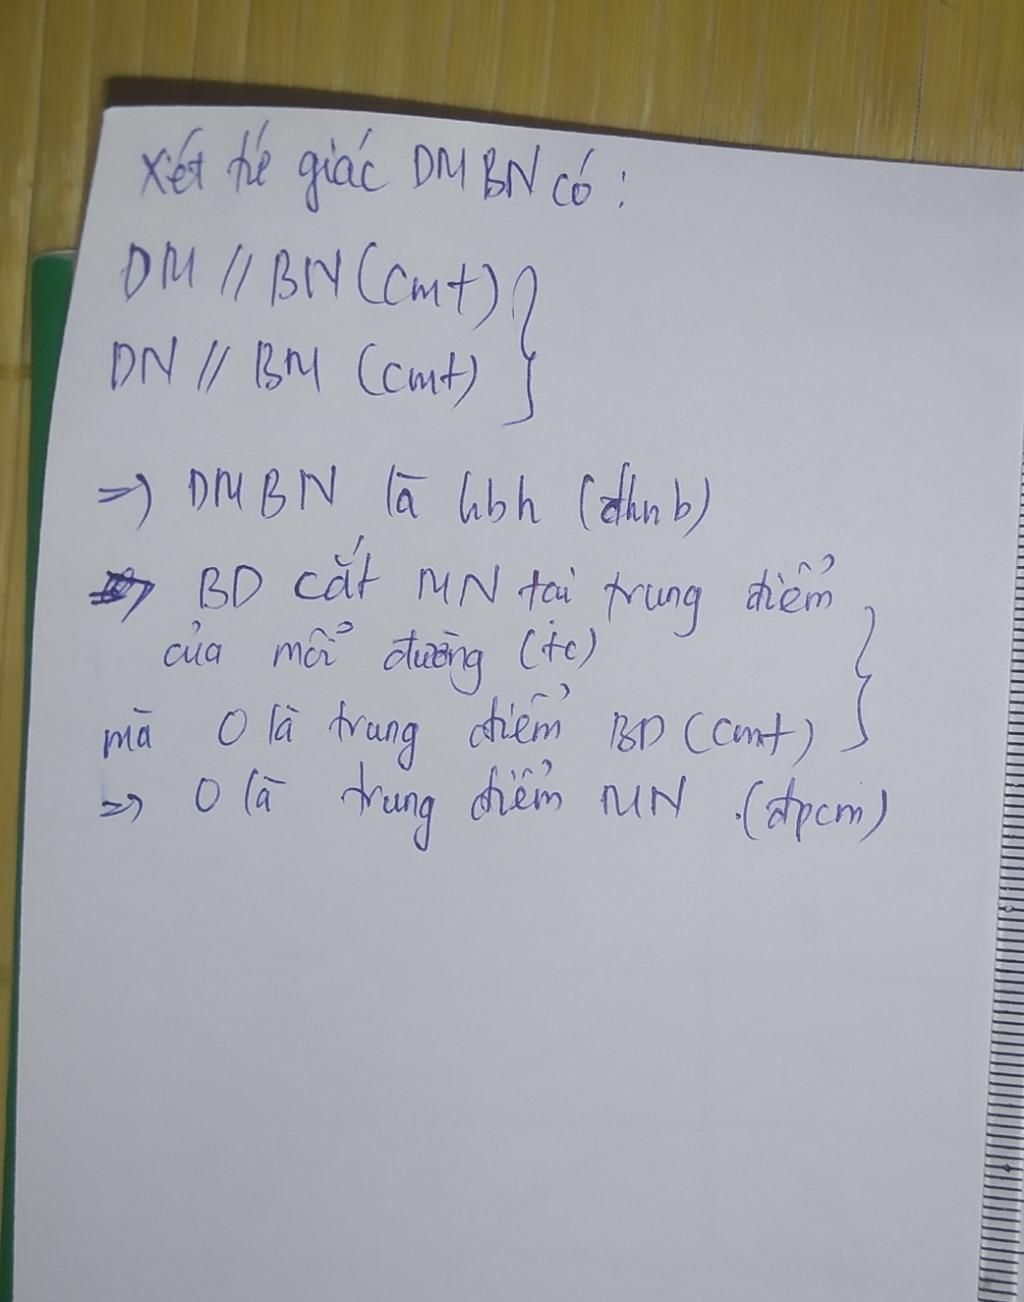 Xét tứ giác DMBN có:
DM // BN (cmt)
DN // BM (cmt)
=> DMBN là hbh (dhnb)
=> BD cắt MN tại trung điểm
của mỗi đường (tc)
mà O là trung điểm BD (cmt)
=> O là trung điểm MN. (đpcm)